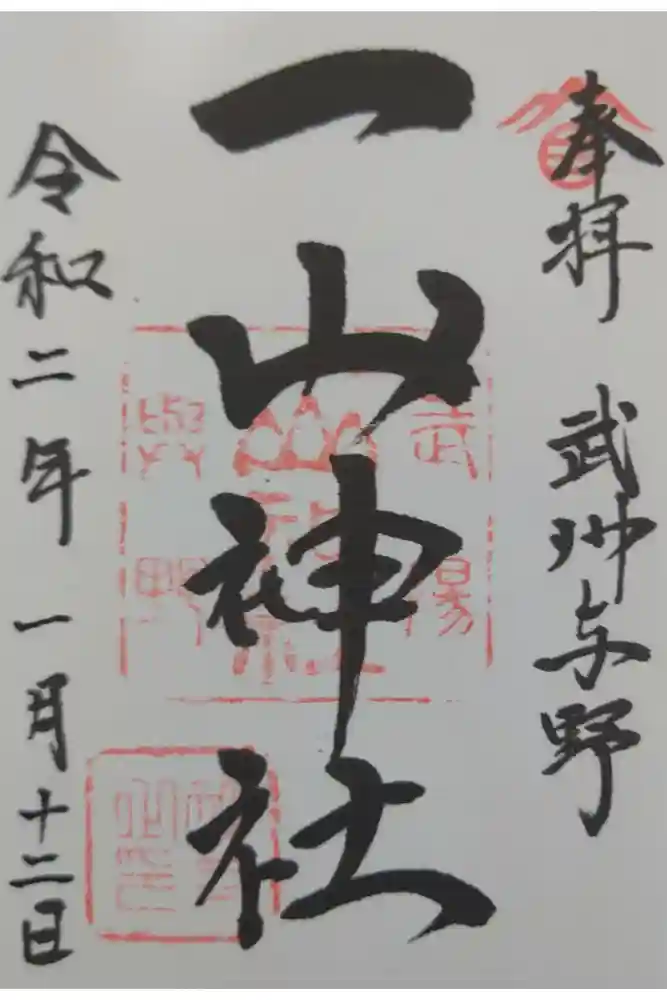 奉拝 武州与野
一山神社
令和二年 一月十二日